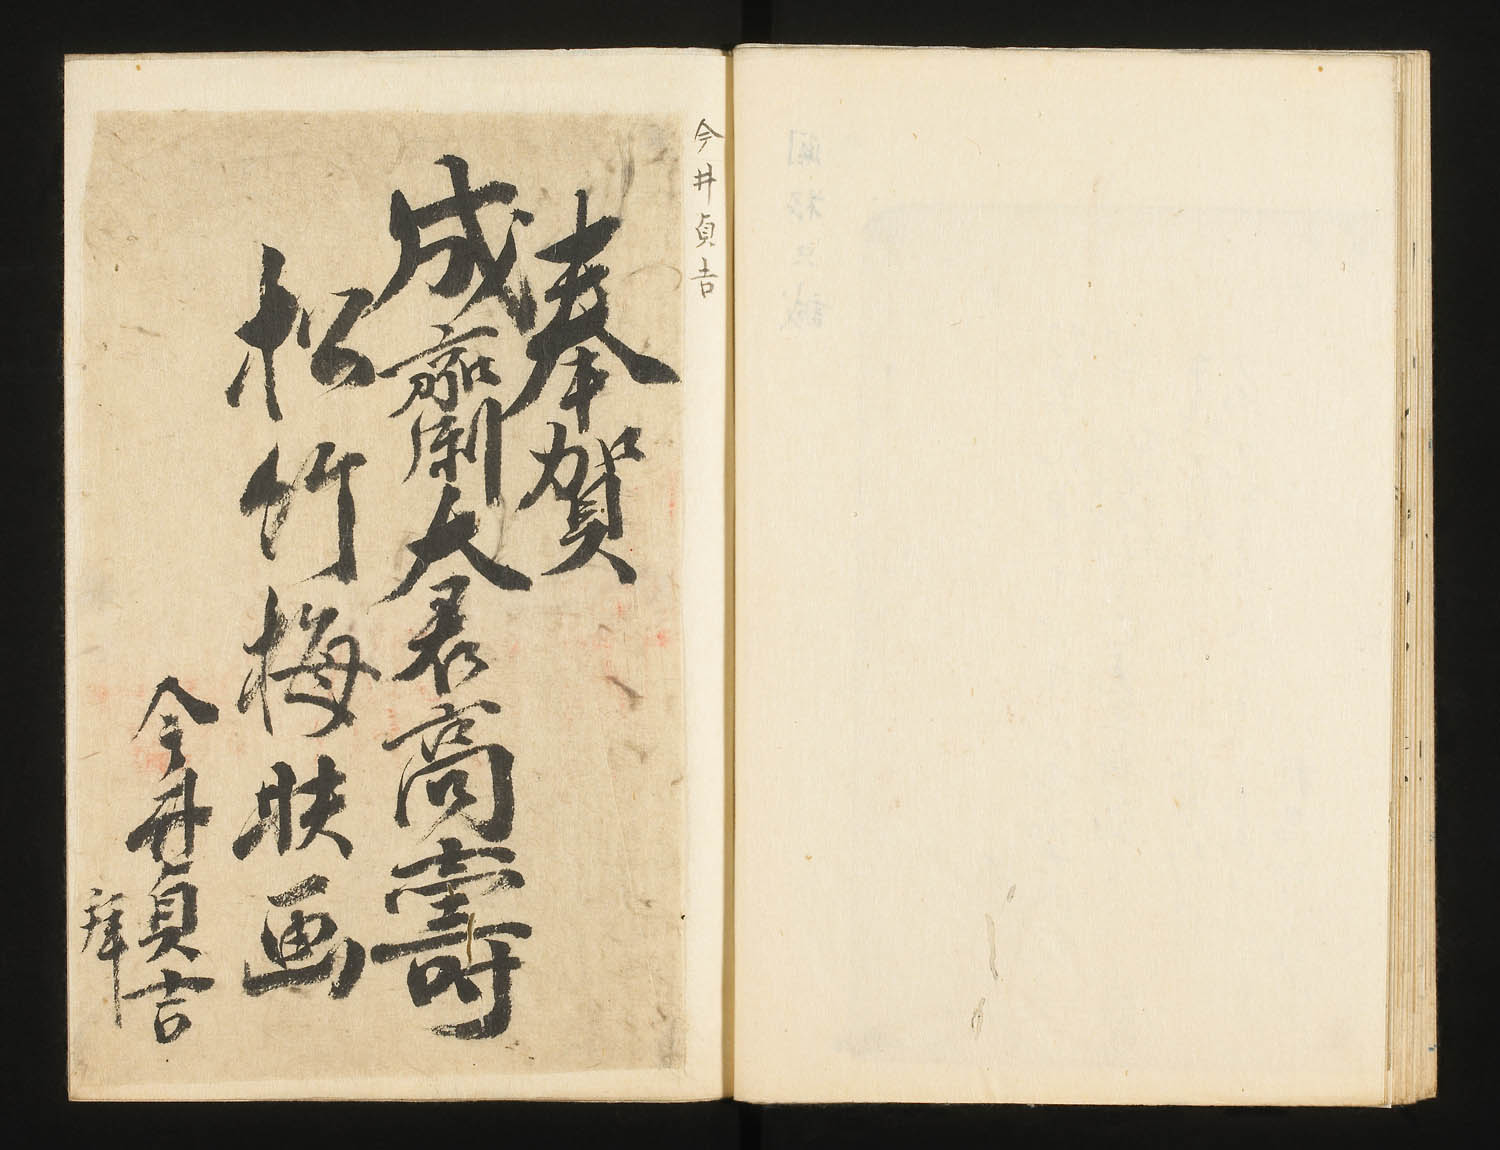 今井貞吉
奉賀
成齋大君高壽
松竹梅
画
今井貞吉
拜